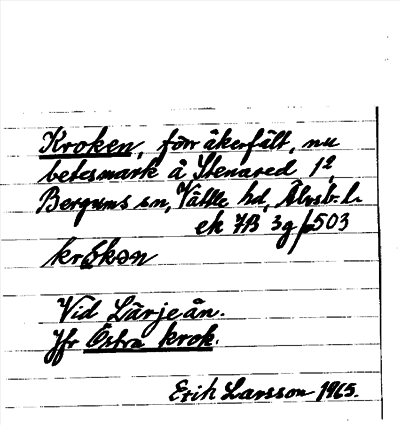 Kroken, förr åkerfält, nu
betesmark å Stenared 1²,
Bergums sn, Vättle hd, Älvsb. l.
ek 7B 3g/p503
krokən
Vid Lärjeån.
Jfr Östra krok.
Erik Larsson 1965.